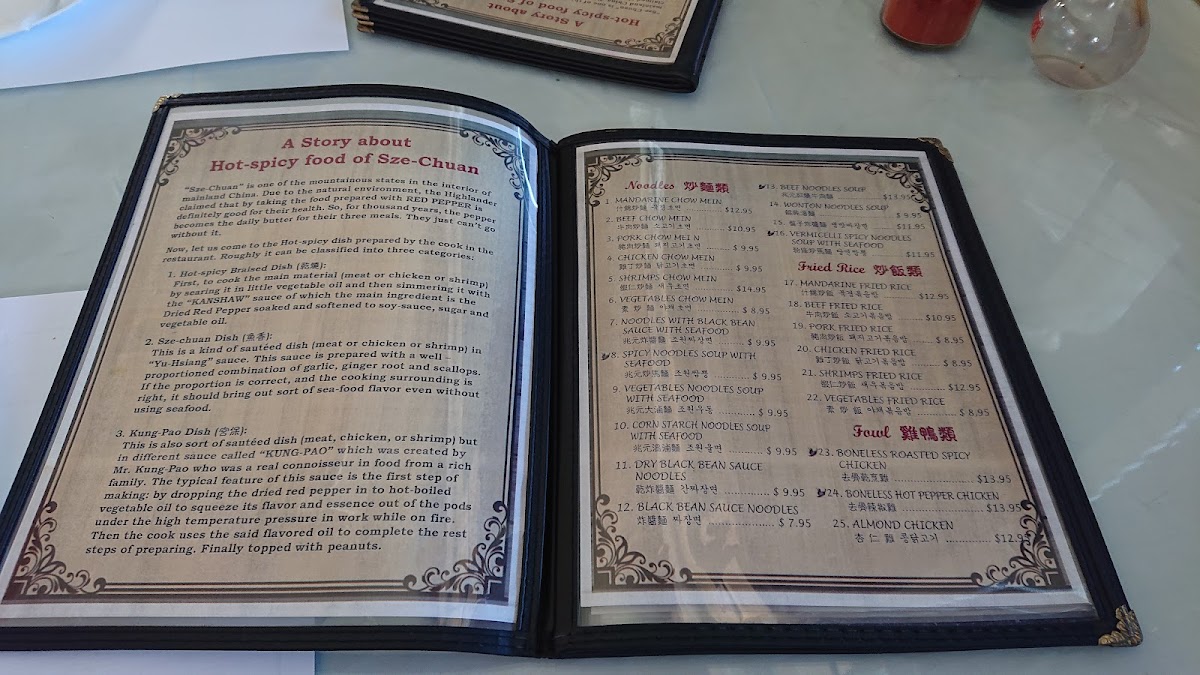 A Story about
Hot-spicy food of S
A Story about
Hot-spicy food of Sze-Chuan
"Sze-Chuan" is one of the mountainous states in the interior of
mainland China. Due to the natural environment, the Highlander
claimed that by taking the food prepared with RED PEPPER is
definitely good for their health. So, for thousand years, the pepper
becomes the daily butter for their three meals. They just can't go
without it.
Now, let us come to the Hot-spicy dish prepared by the cook in the
restaurant. Roughly it can be classified into three categories:
1. Hot-spicy Braised Dish (乾燒):
First, to cook the main material (meat or chicken or shrimp)
by searing it in little vegetable oil and then simmering it with
the "KANSHAW" sauce of which the main ingredient is the
Dried Red Pepper soaked and softened to soy-sauce, sugar and
vegetable oil.
2. Sze-chuan Dish (魚香):
This is a kind of sautéed dish (meat or chicken or shrimp) in
"Yu-Hsiang" sauce. This sauce is prepared with a well –
proportioned combination of garlic, ginger root and scallops.
If the proportion is correct, and the cooking surrounding is
right, it should bring out sort of sea-food flavor even without
using seafood.
3. Kung-Pao Dish (宮保):
This is also sort of sautéed dish (meat, chicken, or shrimp) but
in different sauce called "KUNG-PAO" which was created by
Mr. Kung-Pao who was a real connoisseur in food from a rich
family. The typical feature of this sauce is the first step of
making: by dropping the dried red pepper in to hot-boiled
vegetable oil to squeeze its flavor and essence out of the pods
under the high temperature pressure in work while on fire.
Then the cook uses the said flavored oil to complete the rest
steps of preparing. Finally topped with peanuts.
Noodles 炒麵類
1. MANDARINE CHOW MEIN
什錦炒麵 특정초면 ............ $12.95
2. BEEF CHOW MEIN
牛肉炒麵 소고기초면 ............ $10.95
3. PORK CHOW MEIN
豬肉炒麵 돼지고기초면 ............ $ 9.95
4. CHICKEN CHOW MEIN
雞丁炒麵 닭고기초면 ............ $ 9.95
5. SHRIMPS CHOW MEIN
蝦仁炒麵 새우초면 ............ $14.95
6. VEGETABLES CHOW MEIN
素 炒 麵 야채초면 ............ $ 8.95
7. NOODLES WITH BLACK BEAN
SAUCE WITH SEAFOOD
兆元炸醬麵 조원짜장면 ............ $ 9.95
8. SPICY NOODLES SOUP WITH
SEAFOOD
兆元炒馬麵 조원짬뽕 ............ $ 9.95
9. VEGETABLES NOODLES SOUP
WITH SEAFOOD
兆元大滷麵 조원우동 ............ $ 9.95
10. CORN STARCH NOODLES SOUP
WITH SEAFOOD
兆元溫滷麵 조원울면 ............ $ 9.95
11. DRY BLACK BEAN SAUCE
NOODLES
乾炸醬麵 간짜장면 ............ $ 9.95
12. BLACK BEAN SAUCE NOODLES
炸醬麵 짜장면 ............ $ 7.95
13. BEEF NOODLES SOUP
$13.95
14. WONTON NOODLES SOUP
$ 9.95
15.
$11.95
16. VERMICELLI SPICY NOODLES
SOUP WITH SEAFOOD
$11.95
Fried Rice 炒飯類
17. MANDARINE FRIED RICE
什錦炒飯 특정볶음밥 ............ $12.95
18. BEEF FRIED RICE
牛肉炒飯 소고기볶음밥 ............ $10.95
19. PORK FRIED RICE
豬肉炒飯 돼지고기볶음밥 ............ $ 8.95
20. CHICKEN FRIED RICE
雞丁炒飯 닭고기볶음밥 ............ $ 8.95
21. SHRIMPS FRIED RICE
蝦仁炒飯 새우볶음밥 ............ $12.95
22. VEGETABLES FRIED RICE
素 炒 飯 야채볶음밥 ............ $ 8.95
Fowl 雞鴨類
23. BONELESS ROASTED SPICY
CHICKEN
去骨乾烹雞 ............ $13.95
24. BONELESS HOT PEPPER CHICKEN
去骨辣椒雞 ............ $13.95
25. ALMOND CHICKEN
杏 仁 雞 콩닭고기 ............ $12.95